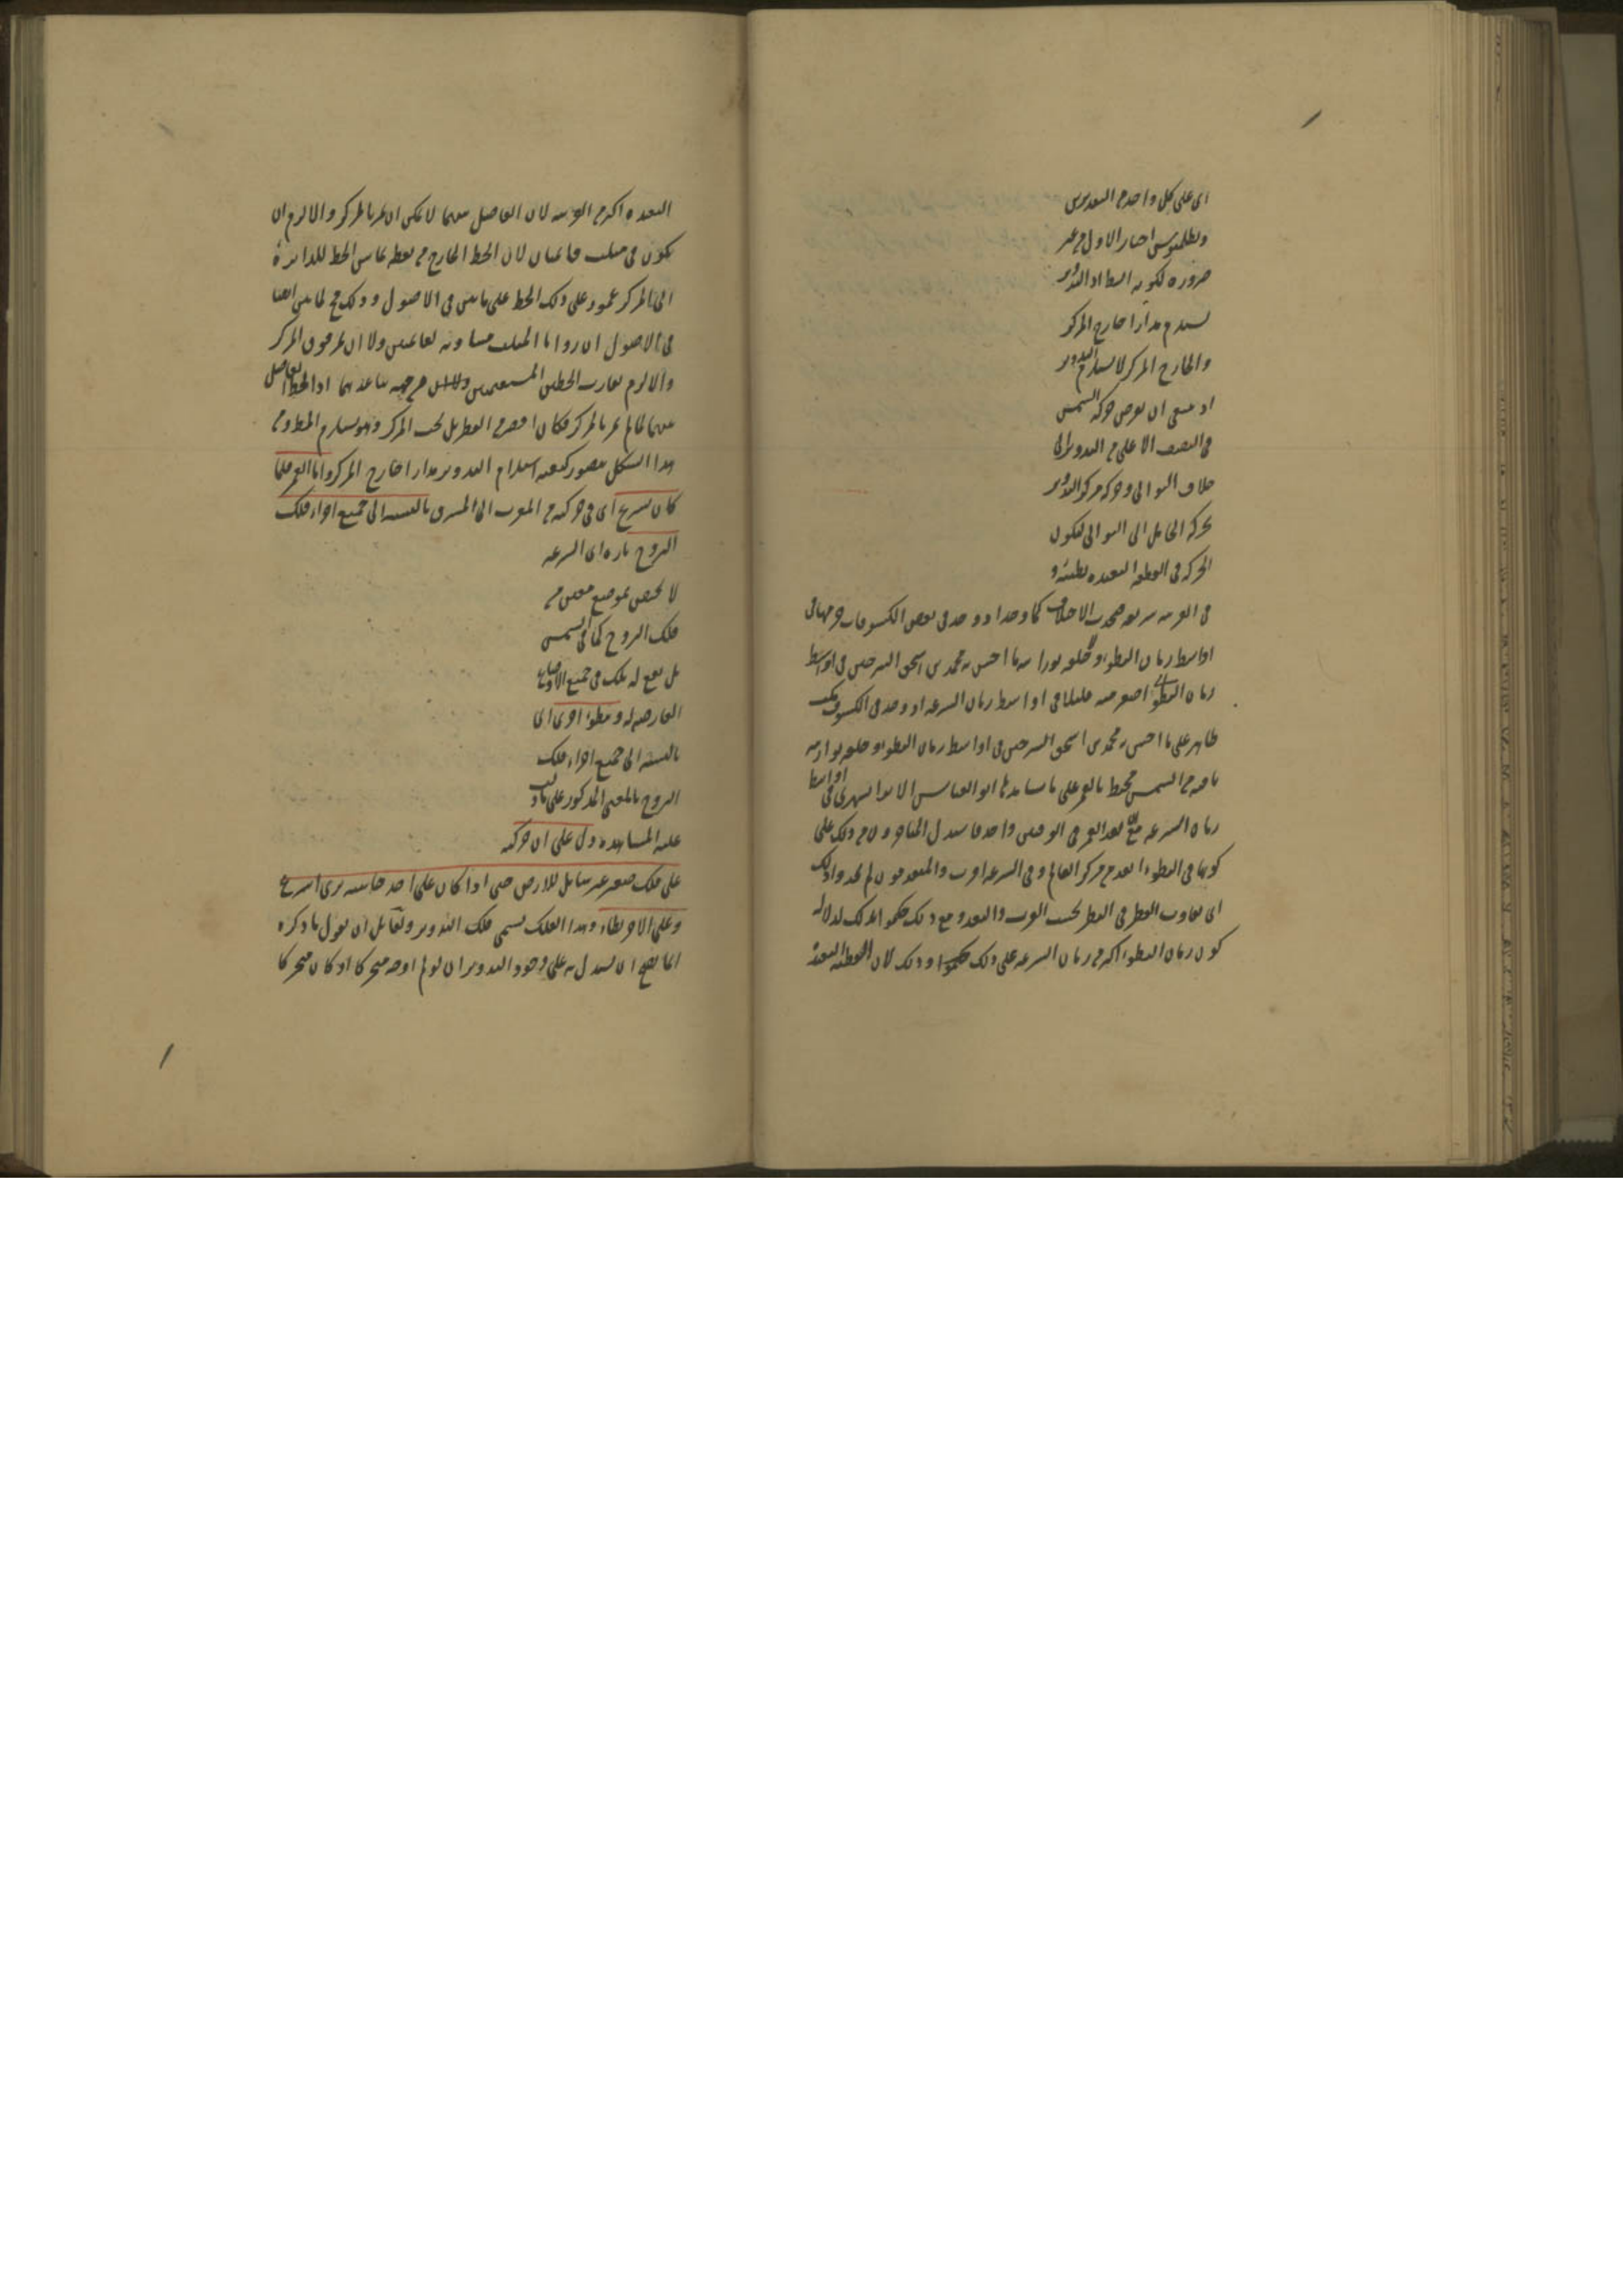 اى على كل واحد من البعدين
وبطلميوس اختار الاول من غير
ضرورة لكونه ابسط اذ التدوير
يستلزم مدارا خارج المركز
والخارج المركز لا يستلزم التدوير
اذ ينبغى ان يعرض حركة الشمس
فى النصف الاعلى من التدوير الى
خلاف التوالى وحركة مركز التدوير
بحركة الحامل الى التوالى فيكون
الحركة فى القطعة البعيدة بطيئة و
فى القريبة سريعة فيحدث الاختلاف كما وجدا ووجد فى بعض الكسوفات جرمها فى
اواسط زمان البطؤ محمد بن اسحق السرخسى فى اواسط
زمان البطؤ اصغر منه قليلا فى اواسط زمان السرعة اذ وجد فى الكسوف
ظاهر على ما محمد بن اسحق السرخسى فى اواسط زمان البطؤ وحلقة نورانية
باقية من الشمس محيط بالقمر على ما شاهدها ابو العباس الايرانشهرى فى اواسط
زمان السرعة مع ان بعد القمر فى الوقتين واحد فاستدل المتاخرون من ذلك على
كونها فى البطؤ ابعد من مركز العالم وفى السرعة اقرب والمتقدمون لم يجدوا ذلك
اى تفاوت القطر فى النظر بحسب القرب والبعد ومع ذلك حكموا بذلك لدلالة
كون زمان البطؤ اكثر من زمان السرعة على ذلك وذلك لان القطعة البعيدة
البعيدة اكبر من القريبة لان الفاصل بينهما لا يمكن ان يمر بالمركز والا لزم ان
يكون فى مثلث قائمتان لان الخط الخارج من نقطة تماس الخط للدائرة
الى المركز عمود على ذلك الخط على ما تبين فى الاصول وذلك مح لما تبين ايضا
فى الاصول ان زوايا المثلث مساوية لقائمتين ولا ان يمر فوق المركز
والا لزم تقارب الخطين المستقيمين من جهة تباعدهما اذ الخط الفاصل
بينهما لما لم يمر بالمركز فكان اقصر من القطر بل تحت المركز وهو يستلزم المط ومن
هذا الشكل يتصور كيفية استلزام التدوير مدارا خارج المركز واما القمر فلما
كان يسرع اى فى حركته من المغرب الى المشرق بالنسبة الى جميع اجزاء فلك
البروج تارة اى السرعة
لا يختص بموضع معين من
فلك البروج كما فى الشمس
بل يقع له تلك فى جميع الاوضاع
العارضة له ويبطؤ اخرى اى
بالنسبة الى جميع اجزاء فلك
البروج بالمعنى المذكور على ما دلت
عليه المشاهدة دل على ان حركته
على فلك صغير غير شامل للارض حتى اذا كان على احد جانبيه يرى اسرع
وعلى الاخر بطاء وهذا الفلك يسمى فلك التدوير ولقائل ان يقول ما ذكره
انما يصح ان يستدل به على وجود التدوير ان لو لم اوجه متحركا اذ كان متحركا